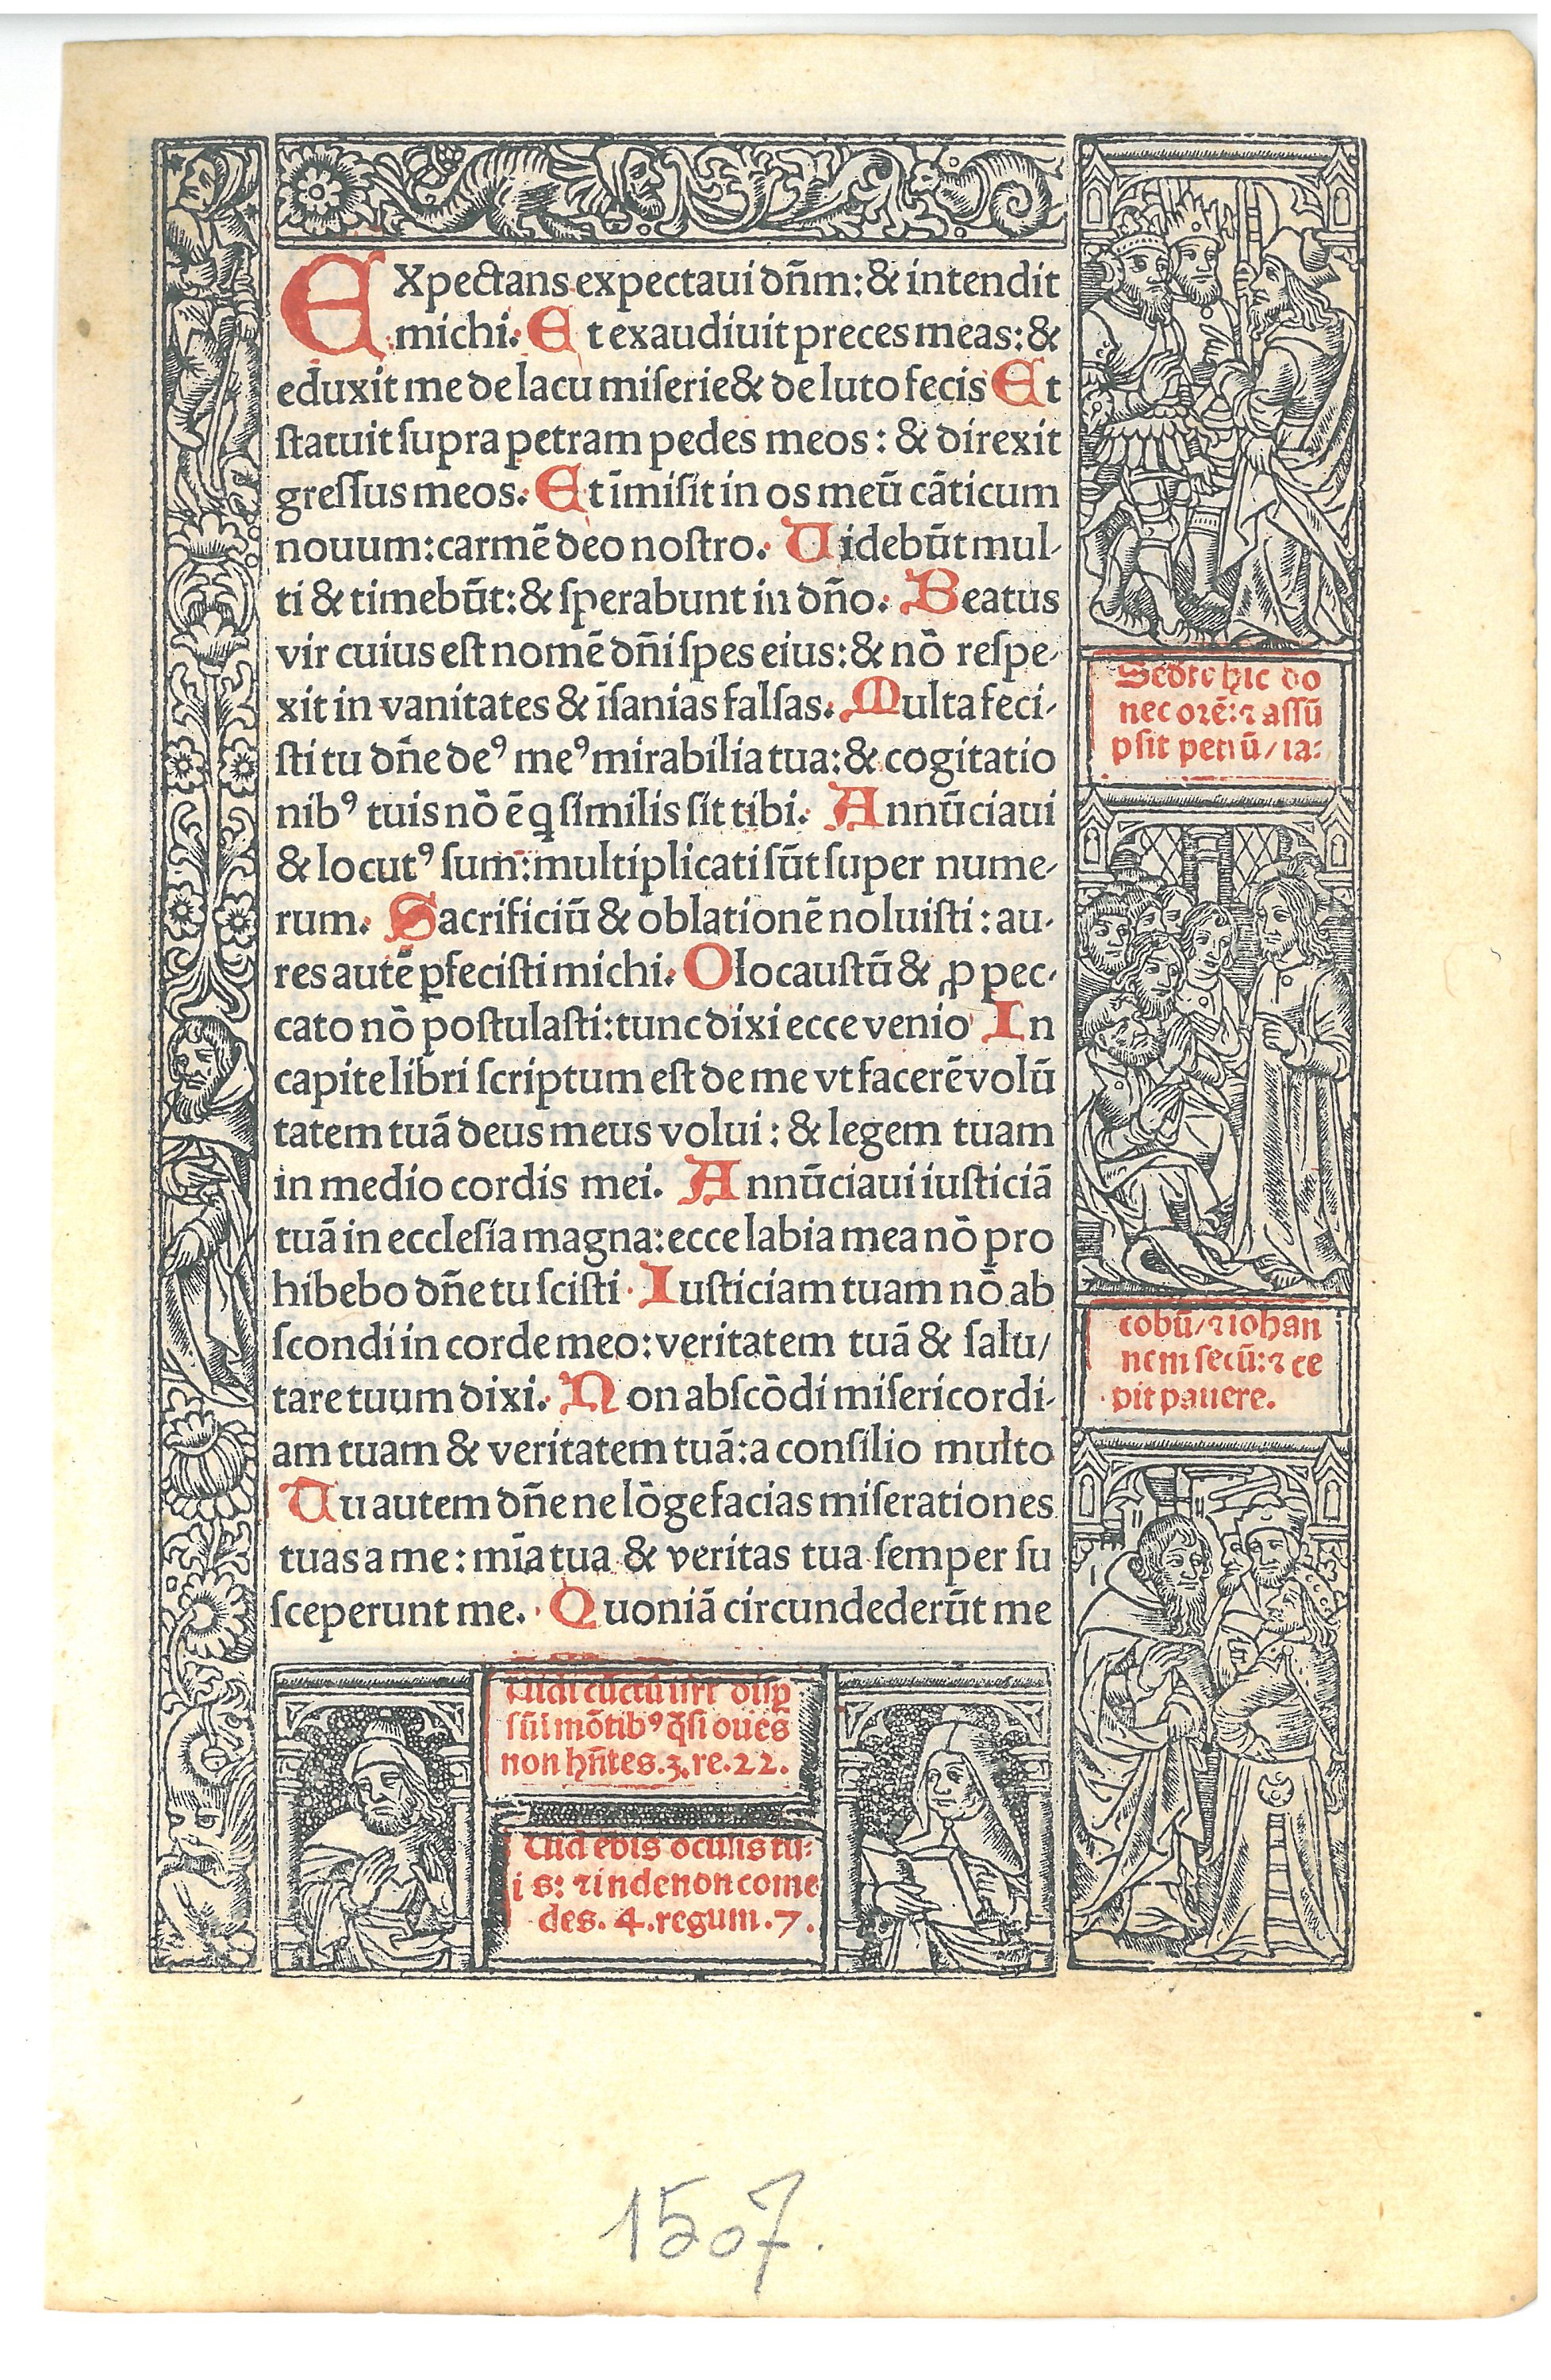 EXpectans expectaui dñm: & intendit
michi. Et exaudiuit preces meas: &
eduxit me de lacu miſerie & de luto fecis Et
ſtatuit ſupra petram pedes meos: & direxit
greſſus meos. Et īmiſit in os meū cāticum
nouum: carmē deo noſtro. Uidebūt mul-
ti & timebūt: & ſperabunt in dño. Beatus
vir cuius eſt nomē dñi ſpes eius: & nō reſpe-
xit in vanitates & īſanias falſas. Multa feci-
ſti tu dñe deꝰ meꝰ mirabilia tua: & cogitatio
nibꝰ tuis nō ē q ſimilis ſit tibi. Annūciaui
& locutꝰ ſum: multiplicati ſūt ſuper nume-
rum. Sacrificiū & oblationē noluiſti: au-
res autē ꝑfeciſti michi. Olocauſtū & ꝓ pec-
cato nō poſtulaſti: tunc dixi ecce venio In
capite libri ſcriptum eſt de me vt facerē volū
tatem tuā deus meus volui: & legem tuam
in medio cordis mei. Annūciaui iuſticiā
tuā in eccleſia magna: ecce labia mea nō pro
hibebo dñe tu ſciſti. Iuſticiam tuam nō ab
ſcondi in corde meo: veritatem tuā & ſalu/
tare tuum dixi. Non abſcōdi miſericordi-
am tuam & veritatem tuā: a conſilio multo
Tu autem dñe ne lōge facias miſerationes
tuas a me: mīa tua & veritas tua ſemper ſu
ſceperunt me. Quoniā circundederūt me
Sedete hic do
nec orē: ⁊ aſſū
pſit petrū / ia:
cobū / ⁊ iohan
nem ſecū: ⁊ ce
pit pauere.
Uidi cūctū iſrl̄ diſꝑ
ſū ī mōtibꝰ q̄ſi oues
non hñtes. 3. re. 22.
Uidebis oculis tu:
is: ⁊ inde non come
des. 4. regum. 7.
1507.